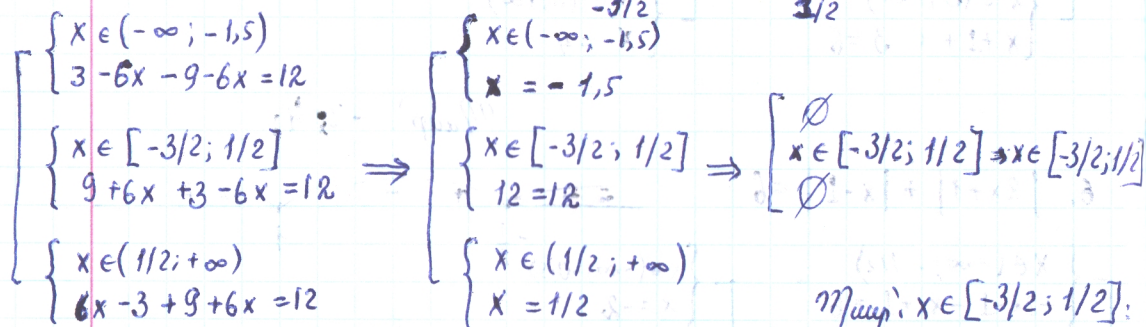 -3/2 1/2
x ∈ (-∞; -1,5)
3 - 6x - 9 - 6x = 12
x ∈ [-3/2; 1/2]
9 + 6x + 3 - 6x = 12
x ∈ (1/2; +∞)
6x - 3 + 9 + 6x = 12
⇒
x ∈ (-∞; -1,5)
x = - 1,5
x ∈ [-3/2; 1/2]
12 = 12
x ∈ (1/2; +∞)
x = 1/2
⇒
∅
x ∈ [-3/2; 1/2] → x ∈ [-3/2; 1/2]
∅
x ∈ [-3/2; 1/2]: